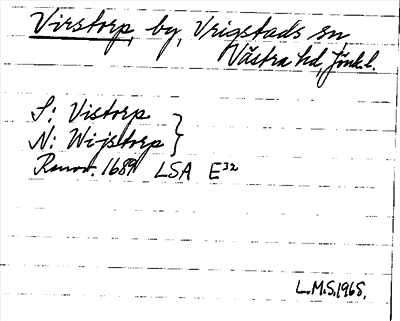 Virstorp, by, Vrigstads sn
Västra hd, Jönk.l.
S: Vistorp
N: Wijstorp }
Renov. 1689 LSA E³²
L.M.S. 1968.